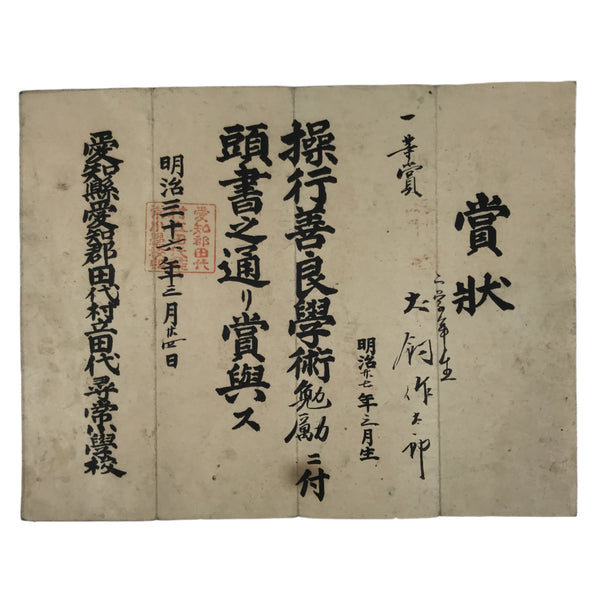 賞狀
一等賞
二学年生
大釣作太郎
明治廿七年三月生
操行善良學術勉励ニ付
頭書之通リ賞與ス
明治三十六年三月廿四日
愛知縣愛知郡田代村立田代尋常小學校
愛知郡田代